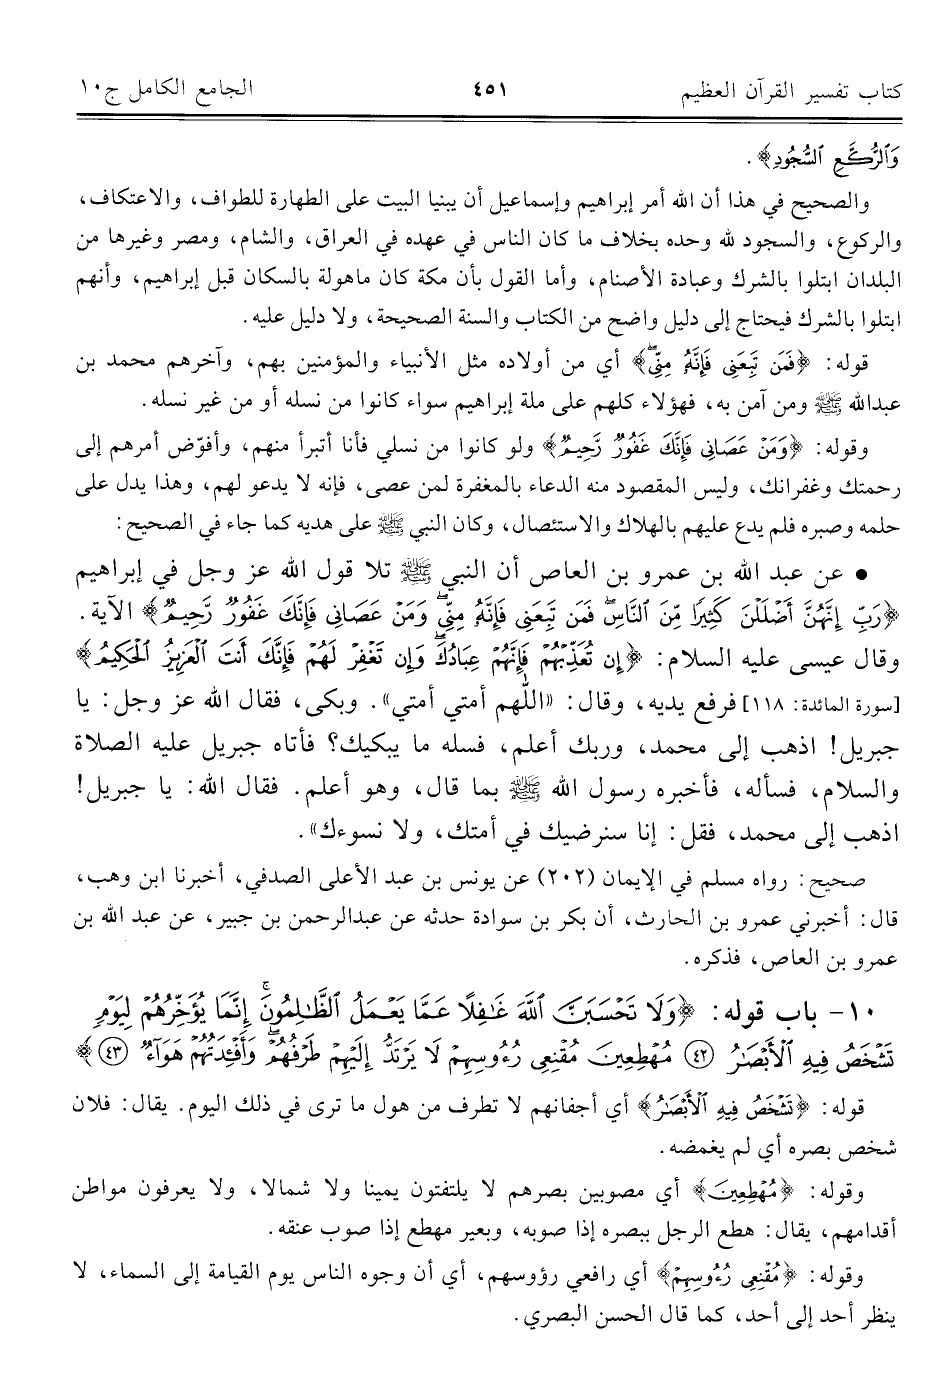 كتاب تفسير القرآن العظيم ٤٥١ الجامع الكامل ج١٠
وَٱلرُّكَّعِ ٱلسُّجُودِ﴾.
والصحيح في هذا أن الله أمر إبراهيم وإسماعيل أن يبنيا البيت على الطهارة للطواف، والاعتكاف،
والركوع، والسجود لله وحده بخلاف ما كان الناس في عهده في العراق، والشام، ومصر وغيرها من
البلدان ابتلوا بالشرك وعبادة الأصنام، وأما القول بأن مكة كان ماهولة بالسكان قبل إبراهيم، وأنهم
ابتلوا بالشرك فيحتاج إلى دليل واضح من الكتاب والسنة الصحيحة، ولا دليل عليه.
قوله: ﴿فَمَن تَبِعَنِى فَإِنَّهُۥ مِنِّىۖ﴾ أي من أولاده مثل الأنبياء والمؤمنين بهم، وآخرهم محمد بن
عبدالله ﷺ ومن آمن به، فهؤلاء كلهم على ملة إبراهيم سواء كانوا من نسله أو من غير نسله.
وقوله: ﴿وَمَنْ عَصَانِى فَإِنَّكَ غَفُورٌ رَّحِيمٌ﴾ ولو كانوا من نسلي فأنا أتبرأ منهم، وأفوّض أمرهم إلى
رحمتك وغفرانك، وليس المقصود منه الدعاء بالمغفرة لمن عصى، فإنه لا يدعو لهم، وهذا يدل على
حلمه وصبره فلم يدع عليهم بالهلاك والاستئصال، وكان النبي ﷺ على هديه كما جاء في الصحيح:
• عن عبد الله بن عمرو بن العاص أن النبي ﷺ تلا قول الله عز وجل في إبراهيم
﴿رَبِّ إِنَّهُنَّ أَضْلَلْنَ كَثِيرًا مِّنَ ٱلنَّاسِۖ فَمَن تَبِعَنِى فَإِنَّهُۥ مِنِّىۖ وَمَنْ عَصَانِى فَإِنَّكَ غَفُورٌ رَّحِيمٌ﴾ الآية.
وقال عيسى عليه السلام: ﴿إِن تُعَذِّبْهُمْ فَإِنَّهُمْ عِبَادُكَۖ وَإِن تَغْفِرْ لَهُمْ فَإِنَّكَ أَنتَ ٱلْعَزِيزُ ٱلْحَكِيمُ﴾
[سورة المائدة: ١١٨] فرفع يديه، وقال: «اللّهم أمتي أمتي». وبكى، فقال الله عز وجل: يا
جبريل! اذهب إلى محمد، وربك أعلم، فسله ما يبكيك؟ فأتاه جبريل عليه الصلاة
والسلام، فسأله، فأخبره رسول الله ﷺ بما قال، وهو أعلم. فقال الله: يا جبريل!
اذهب إلى محمد، فقل: إنا سنرضيك في أمتك، ولا نسوءك».
صحيح: رواه مسلم في الإيمان (٢٠٢) عن يونس بن عبد الأعلى الصدفي، أخبرنا ابن وهب،
قال: أخبرني عمرو بن الحارث، أن بكر بن سوادة حدثه عن عبدالرحمن بن جبير، عن عبد الله بن
عمرو بن العاص، فذكره.
١٠- باب قوله: ﴿وَلَا تَحْسَبَنَّ ٱللَّهَ غَٰفِلًا عَمَّا يَعْمَلُ ٱلظَّٰلِمُونَۚ إِنَّمَا يُؤَخِّرُهُمْ لِيَوْمٍ
تَشْخَصُ فِيهِ ٱلْأَبْصَٰرُ ٤٢ مُهْطِعِينَ مُقْنِعِى رُءُوسِهِمْ لَا يَرْتَدُّ إِلَيْهِمْ طَرْفُهُمْۖ وَأَفْـِٔدَتُهُمْ هَوَآءٌ ٤٣﴾
قوله: ﴿تَشْخَصُ فِيهِ ٱلْأَبْصَٰرُ﴾ أي أجفانهم لا تطرف من هول ما ترى في ذلك اليوم. يقال: فلان
شخص بصره أي لم يغمضه.
وقوله: ﴿مُهْطِعِينَ﴾ أي مصوبين بصرهم لا يلتفتون يمينا ولا شمالا، ولا يعرفون مواطن
أقدامهم، يقال: هطع الرجل ببصره إذا صوبه، وبعير مهطع إذا صوب عنقه.
وقوله: ﴿مُقْنِعِى رُءُوسِهِمْ﴾ أي رافعي رؤوسهم، أي أن وجوه الناس يوم القيامة إلى السماء، لا
ينظر أحد إلى أحد، كما قال الحسن البصري.